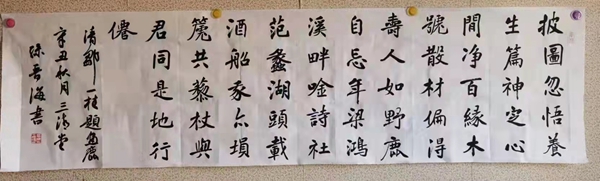 披圖忽悟養
生篇神定心
閒净百緣木
號散材偏得
壽人如野鹿
自忘年梁鴻
溪畔唫詩社
范蠡湖頭載
酒船亦塤
篪共藜杖與
君同是地行
僊
清鄒一桂題畫鹿
辛丑秋月三堂
海書